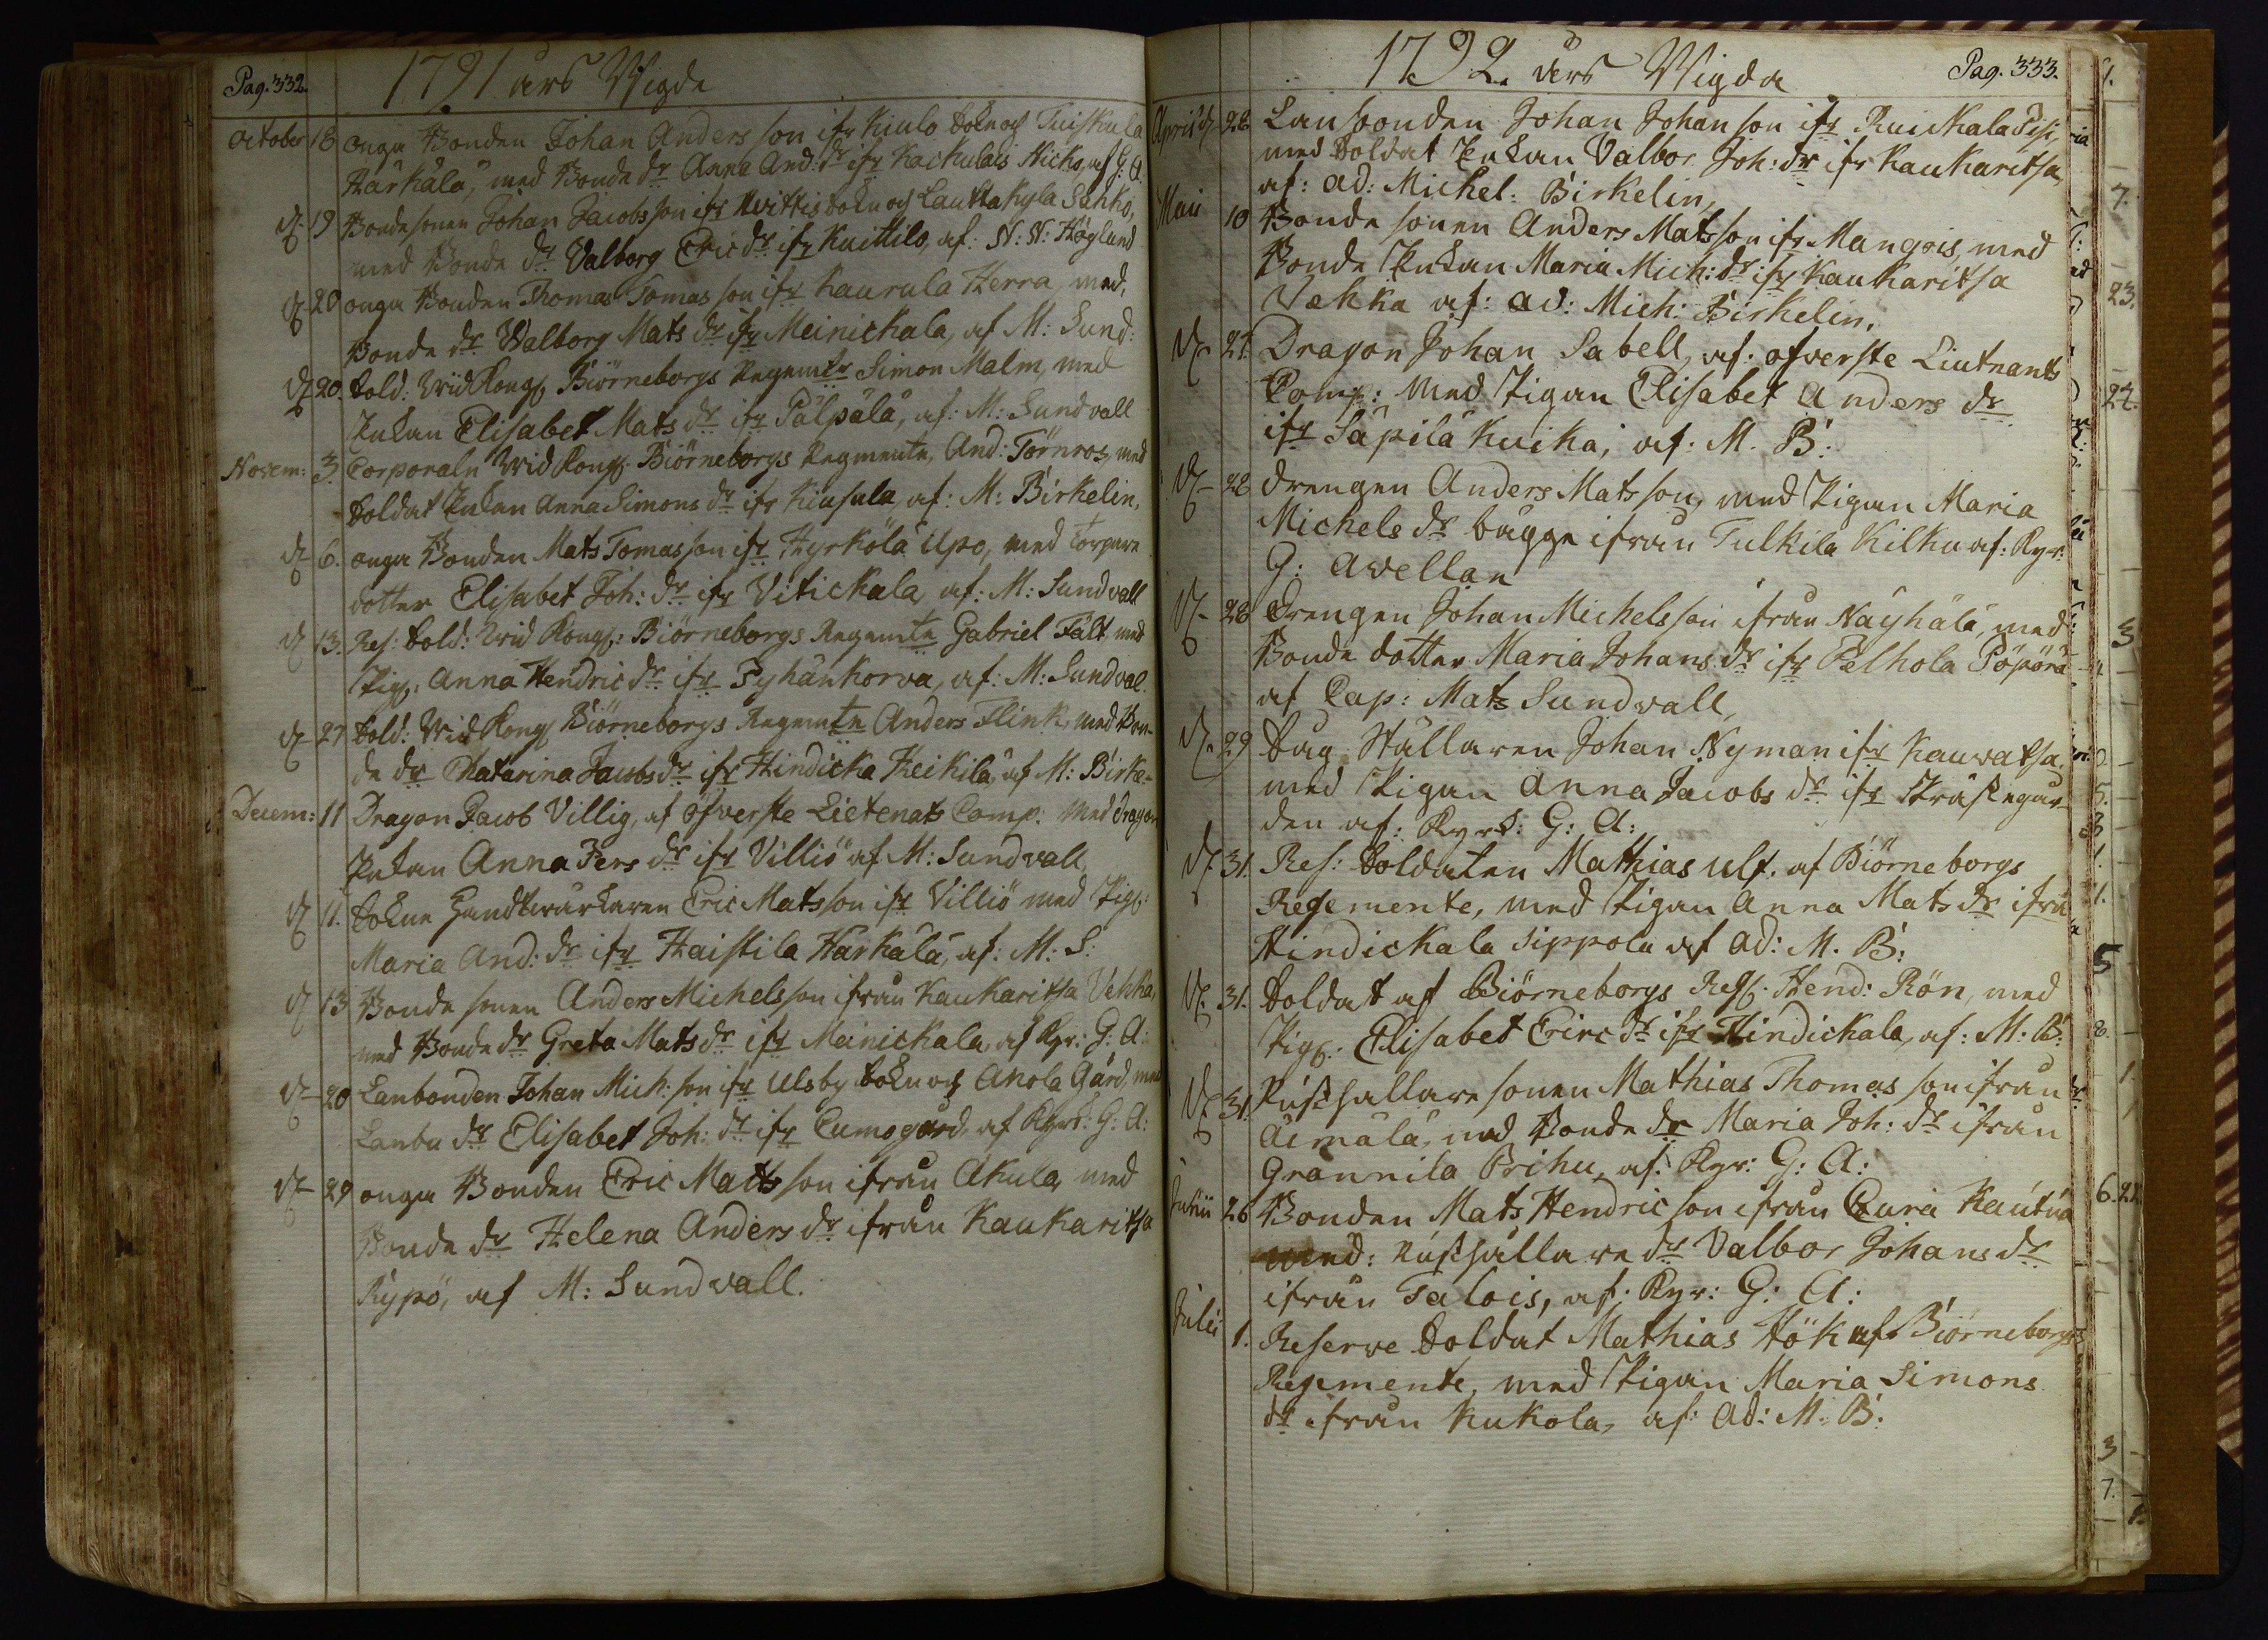 Pag. 332.
1791 års Wigde
October 18 onga Bonden Johan Anders son ifr Kiulo Sokn och Tuiskula
Härkälä, med Bonde dr Anna And: dr ifr Kackulais Nicko, af G: A.
d 19 Bonde sonen Johan Jacobs son ifr Hvittis Sokn och Lauttakyla Sahko,
med Bonde dr Valborg Eric dr ifr Kuittilo, af: N: N: Högland
d 20 onga Bonden Thomas Tomas son ifr Kaurula Herra med,
Bonde dr Walborg Mats dr ifr Meinickala, af M: Sund:
d 20. Sold: Wid Kong Biörneborgs Regemte Simon Malm, med
Enkan Elisabet Mats dr ifr Pälpälä, af: M: Sundvall
Novem: 3. Corporaln Wid Kong: Biörneborgs Regmente, And: Törnros, med
Soldat Enkan Anna Simons dr ifr Kiusula, af: M: Birkelin,
d 6. onga Bonden Mats Tomas son ifr Hyrkölä Upo, med Torpare
dotter Elisabet Joh: dr ifr Vitickala, af: M: Sundvall
d 13. Res: Sold: Wid Kong: Biörneborgs Regemte Gabriel Fält, med
Pig: Anna Hendric dr ifr Pyhänkorva, af: M: Sundval.
d 27 Sold: Wid Kong Biörneborgs Regemte Anders Flink, med Bon-
de dr Chatarina Jacobs dr ifr Hindicka Heikilä, af M: Birke-
Decem: 11 Dragon Jacob Villig, af öfverste Lietenats Comp: Med Dragon
Enkan Anna Pers dr ifr Villiö af M: Sundvall,
d 11. Sokne Handtvärkaren Eric Mats son ifr Villiö med Pig:
Maria And: dr ifr Haistila Härkälä, af: M: S:
d 13 Bonde sonen Anders Michels son ifrån Kaukaritsa Vekka,
med Bonde dr Greta Mats dr ifr Meinickala, af Kyr: G: A:
d 20 Lanbonden Johan Mich: son ifr Ulsby Sokn och Anola Gård, med
Lanbo dr Elisabet Joh: dr ifr Cumogård, af Kyrk: G: A:
d 29 onga Bonden Eric Matts son ifrån Akula, med
Bonde dr Helena Anders dr ifrån Kaukaritsa
Rypö, af M: Sundvall.
1792. års Wigda
Pag. 333.
Aprili d 22 Lanbonden Johan Johan son ifr Ruickala Pisi,
med Soldat Enkan Valbor Joh: dr ifr Kaukaritsa,
af: ad: Michel: Birkelin,
Maii 10 Bonde sonen Anders Mats son ifr Mangois, med
Bonde Enkan Maria Mich: dr ifr Kaukaritsa
Vækka af: ad: Mich: Birkelin.
d 27. Dragon Johan Sabell, af: ofverste Liutnants
Comp: Med Pigan Elisabet Anders dr
ifr Säpilä Kuika, af: M. B:
d 28 drengen Anders Mats son, med Pigan Maria
Michels dr bägge ifrån Tulkila Kilku af: Kyr:
G: Avellan
d 28 Drengen Johan Michels son ifrån Näyhälä, med
Bonde dotter Maria Johans dr ifr Pelhola Pöpörä
af Cap: Mats Sundvall,
d. 29 Såg Ställaren Johan Nyman ifr Kauvatsa,
med Pigan Anna Jacobs dr ifr Präskegår
den af: Kyrk: G: A:
d. 31. Res: Soldaten Mathias Ulf. af Biörneborgs
Regemente, med Pigan Anna Mats dr ifrå
Hindickala Sippola af ad: M. B:
d. 31. Soldat af Biörneborgs Reg: Hend: Rön, med
Pig: Elisabet Eric dr ifr Hindickala, af: M: B:
d 31. Rusthållare sonen Mathias Thomas son ifrån
Äimälä, med Bonde dr Maria Joh: dr ifrån
Grannila Prihu, af: Kyr: G: A:
Junii 26 Bonden Mats Hendric son ifrån Eura Kautua
med: Rusthållare dr Valbor Johans dr
ifrån Talois, af: Kyr: G: A:
Julii 1. Reserve Soldat Mathias Hök af Biörneborgs
Regemente, med Pigan Maria Simons
dr ifrån Kukola, af: Ad: M: B.